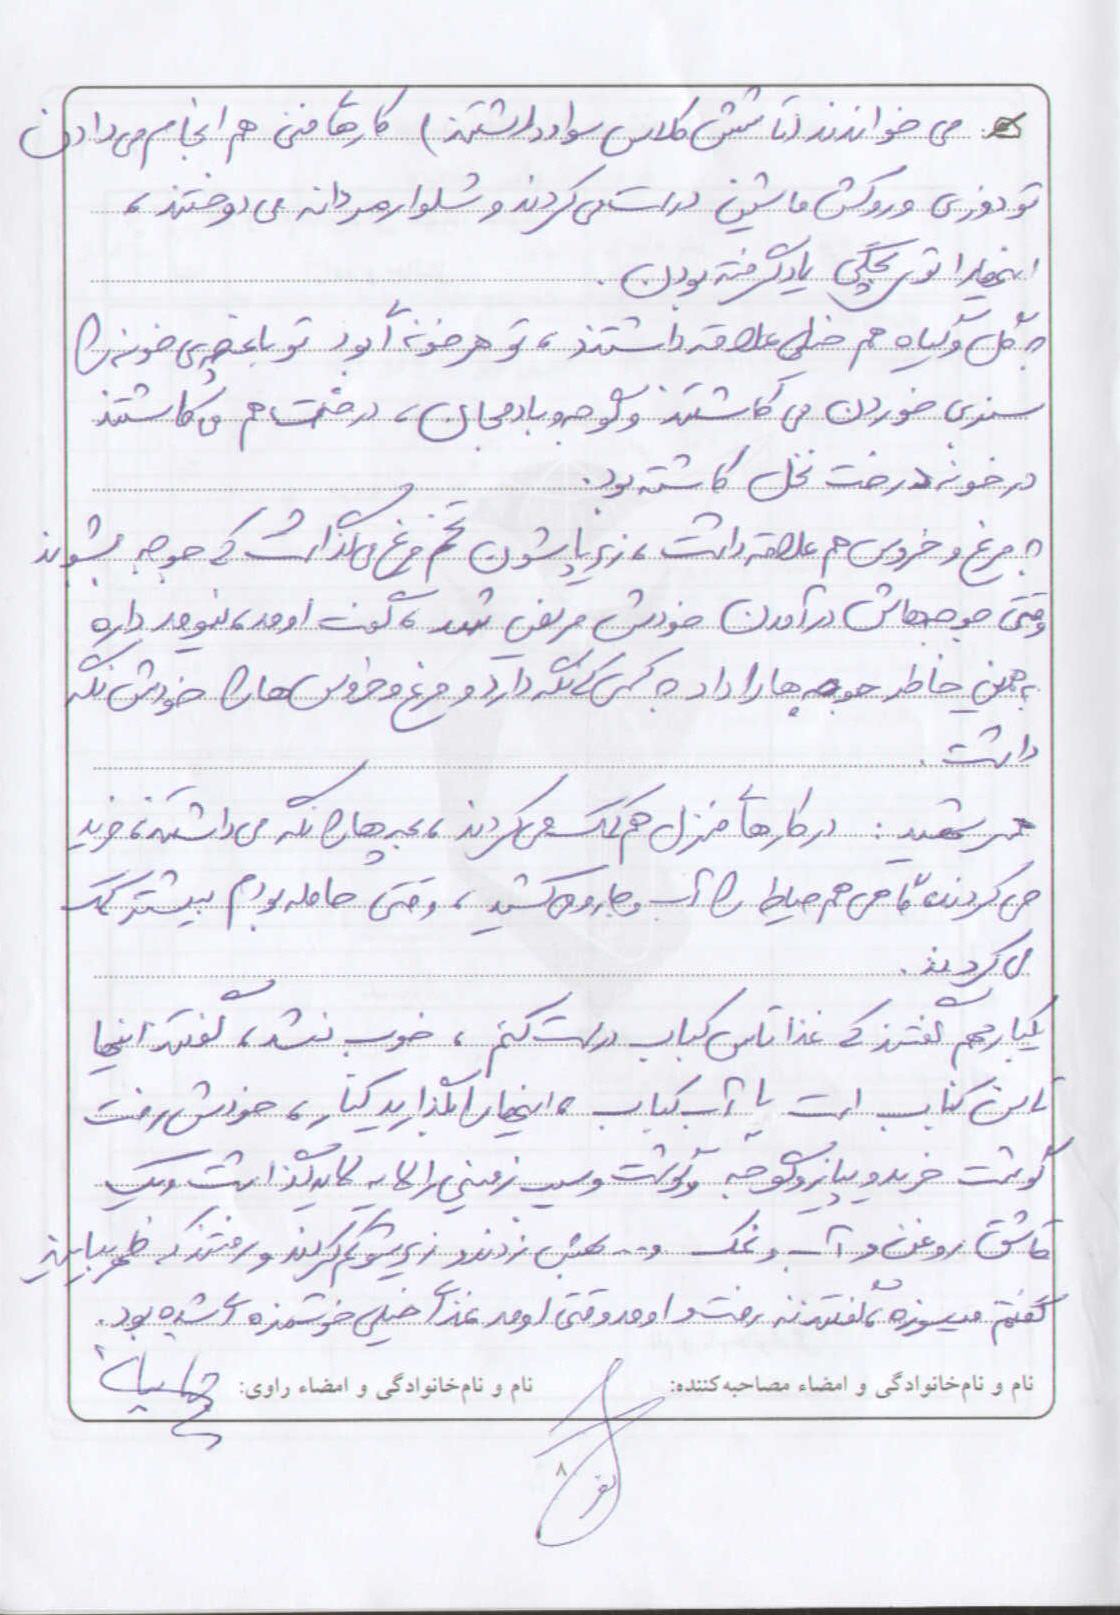 می خواندند (تا شش کلاس سواد داشتند) کارهای فنی هم انجام می دادن
تودوزی و روکش ماشین درست می کردند و شلوار مردانه می دوختند،
اینها را توی بچگی یاد گرفته بودن.
به گل و گیاه هم خیلی علاقه داشتند، تو هر خونه ای بود تو باغچه ی خونه را
سبزی خوردن می کاشتند و گوجه و بادمجان، درخت هم می کاشتند
در خونه درخت نخل کاشته بود.
به مرغ و خروس هم علاقه داشت، زیر پاشون تخم مرغ می گذاشت که جوجه بشوند
وقتی جوجه هاش در آمدن خودش مریض شد، گفت اومد، نیومد داره
به همین خاطر جوجه ها را داد به کسی که نگه دارد و مرغ و خروس ها را خودش نگه
داشت.
همسر شهید: در کارهای منزل هم کمک می کردند، بچه ها را نگه می داشتند، خرید
می کردند، گاهی هم حیاط را آب و جارو می کشید، وقتی حامله بودم بیشتر کمک
می کردند.
یکبار هم گفتند که غذا تاس کباب درست کنم، خوب نشد، گفتند اینها
تاس کباب است یا آب کباب، اینها را بگذارید کنار، خودش رفت
گوشت خرید و پیاز و گوجه و گوشت و سیب زمینی را لایه لایه گذاشت و یک
قاشق روغن و آب و نمک و... بهش زدند و زیرشو کم کردند و رفتند که ظهر بیایند
گفتم میسوزه، گفتند نه رفت و اومد وقتی اومد غذای خیلی خوشمزه ای شده بود.
نام و نام‌خانوادگی و امضاء مصاحبه‌کننده: نام و نام‌خانوادگی و امضاء راوی:
۸